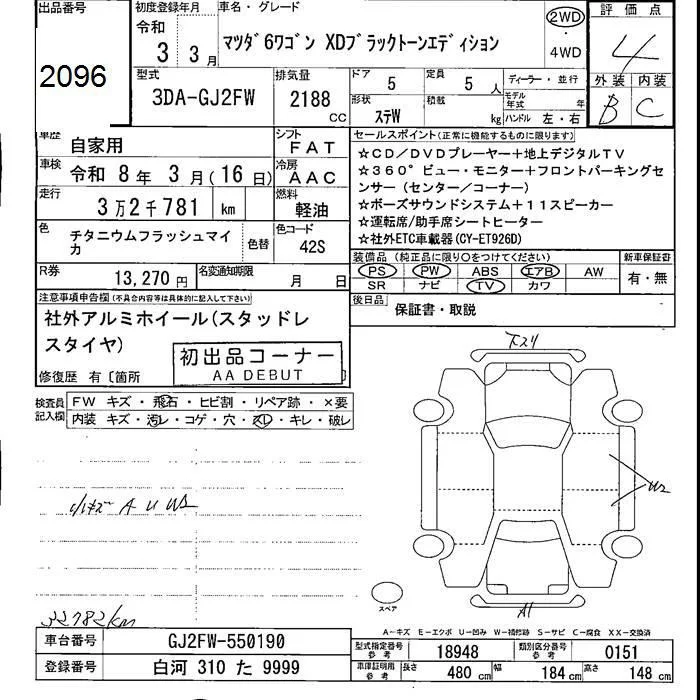 出品番号
2096
初度登録年月
令和
3 3月
車名・グレード
マツダ6ワゴン XDブラックトーンエディション
2WD
・
4WD
評価点
4
外装 内装
B C
型式
3DA-GJ2FW
排気量
2188
CC
ドア
5
定員
5 人
形状
ステW
積載
kg
ディーラー・並行
モデル年式 年
ハンドル 左・右
車歴
自家用
シフト
FAT
車検
令和 8年 3月(16日)
冷房
AAC
走行
3万2千781 km
燃料
軽油
色
チタニウムフラッシュマイカ
色替
色コード
42S
R券
13,270円
名変通知期限
月 日
セールスポイント(正常に機能するものに限ります)
☆CD/DVDプレーヤー+地上デジタルTV
☆360°ビュー・モニター+フロントパーキングセンサー(センター/コーナー)
☆ボーズサウンドシステム+11スピーカー
☆運転席/助手席シートヒーター
☆社外ETC車載器(CY-ET926D)
装備品(純正品に限り○をつけてください)
PS PW ABS エアB AW
SR ナビ TV カワ
新車保証書
有・無
後日品
保証書・取説
注意事項申告欄(不具合内容等は具体的に記入して下さい)
社外アルミホイール(スタッドレスタイヤ)
初出品コーナー
AA DEBUT
修復歴 有〔箇所
検査員記入欄
FW キズ・飛石・ヒビ割・リペア跡・×要
内装 キズ・汚レ・コゲ・穴・スレ・キレ・破レ
A U W2
32782km
下スリ
W2
A1
スペア
A-キズ E-エクボ U-凹み W-補修跡 S-サビ C-腐食 XX-交換済
車台番号
GJ2FW-550190
登録番号
白河 310 た 9999
型式指定番号
参考
18948
類別区分番号
参考
0151
車庫証明用
参考
長さ 480 cm
幅 184 cm
高さ 148 cm